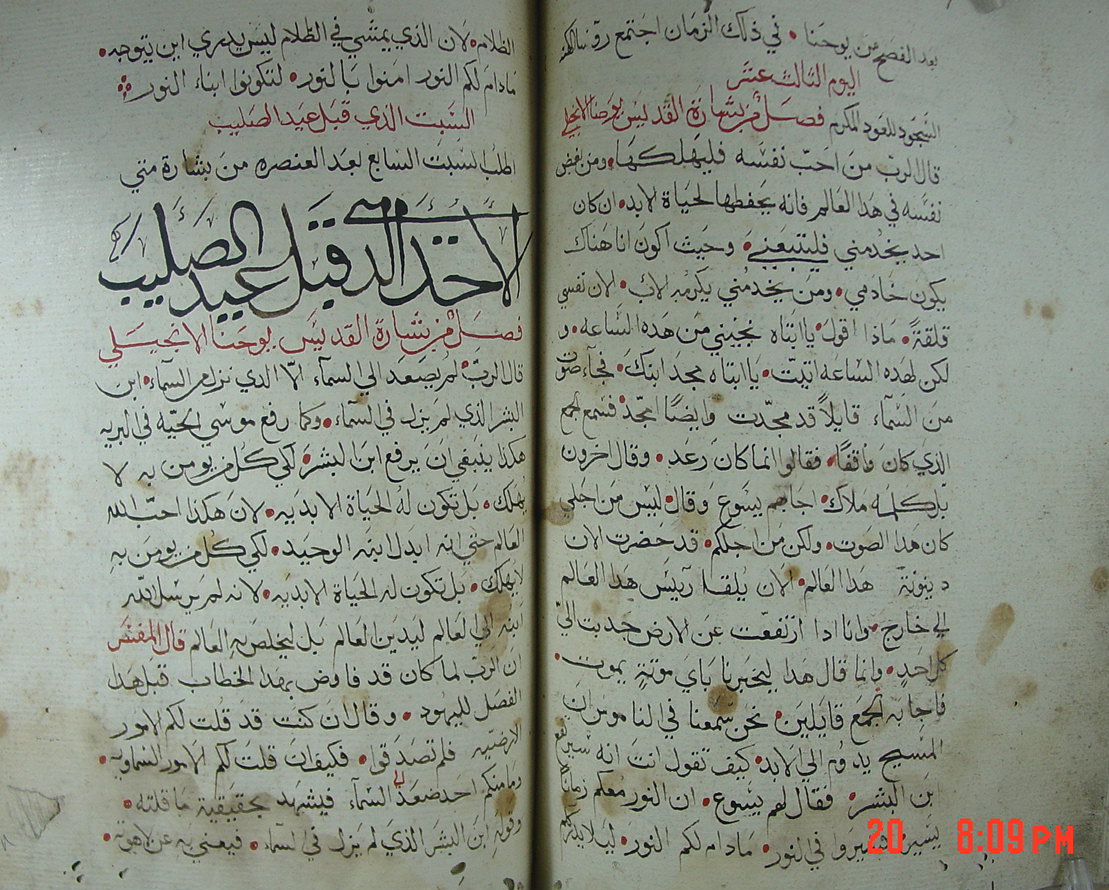 بعد الفصح من يوحنا • في ذلك الزمان اجتمع روسا الكهنه
اليوم الثالث عشر
السجود للعود المكرم فصل من بشارة القديس يوحنا الانجيلي
قال الرب من احبّ نفسه فليهلكها • ومن ابغض
نفسه في هذا العالم فانه يحفظها لحياة الابد • ان كان
احد يخدمني فليتبعني • وحيث اكون انا هناك
يكون خادمي • ومن يخدمني يكرمه الاب • الان نفسي
قلقةً • ماذا اقول يا ابتاه نجيني من هذه الساعه • و
لكن لهذه الساعه اتيت • يا ابتاه مجد ابنك • فجآء صوت
من السمآء قايلاً قد مجدت وايضًا امجّد • فسمع الجمع
الذي كان واقفًا • فقالوا انما كان رعد • وقال اخرون
بل كلمه ملاك • اجابهم يسوع وقال • ليس من اجلي
كان هذا الصوت • ولكن من اجلكم • قد حضرت الان
دينونة هذا العالم • الان يلقا رييس هذا العالم
الي خارج • وانا اذا ارتفعت عن الارض جذبت اليّ
كل احدٍ • وانما قال هذا ليخبرنا باي موتةٍ يموت •
فاجابه الجمع قايلين • نحن سمعنا في الناموس ان
المسيح يدوم الي الابد • كيف تقول انت انه سيرتفع
ابن البشر • فقال لهم يسوع • ان النور معكم زمانًا
يسيرًا • سيروا في النور • مادام لكم النور • ليلا يدرككم
الظلام • لان الذي يمشي في الظلام ليس يدري اين يتوجه •
مادام لكم النور امنوا بالنور • لتكونوا ابناء النور
السبت الذي قبل عيد الصليب
اطلب السبت السابع بعد العنصره من بشارة متي
الاحد الذي قبل عيد الصليب
فصل من بشارة القديس يوحنا الانجيلي
قال الرب • لم يصعد الي السمآء الّا الذي نزل من السماء • ابن
البشر الذي لم يزل في السمآء • وكما رفع موسي الحيّه في البريه
هكذا ينبغي ان يرفع ابن البشر • لكي كل من يومن به لا
يهلك • بل تكون له الحياة الابديه • لان هكذا احبّ الله
العالم حتي انه ابدل ابنه الوحيد • لكي كل من يومن به
لا يهلك • بل تكون له الحياة الابديه • لانه لم يرسل الله
ابنه الي العالم ليدين العالم بل ليخلص به العالم قال المفسر
ان الرب لما كان قد فاوض بهذا الخطاب قبل هذا
الفصل لليهود • وقال ان كنت قد قلت لكم الامور
الارضيه فلم تصدقوا • فكيف ان قلت لكم الامور السماويه •
وما منكم احد صعد الي السمآء فيشهد بحقيقية ما قلته •
وقوله ابن البشر الذي لم يزل في السمآء • فيعني به عن لاهوته •
20 8:09 PM